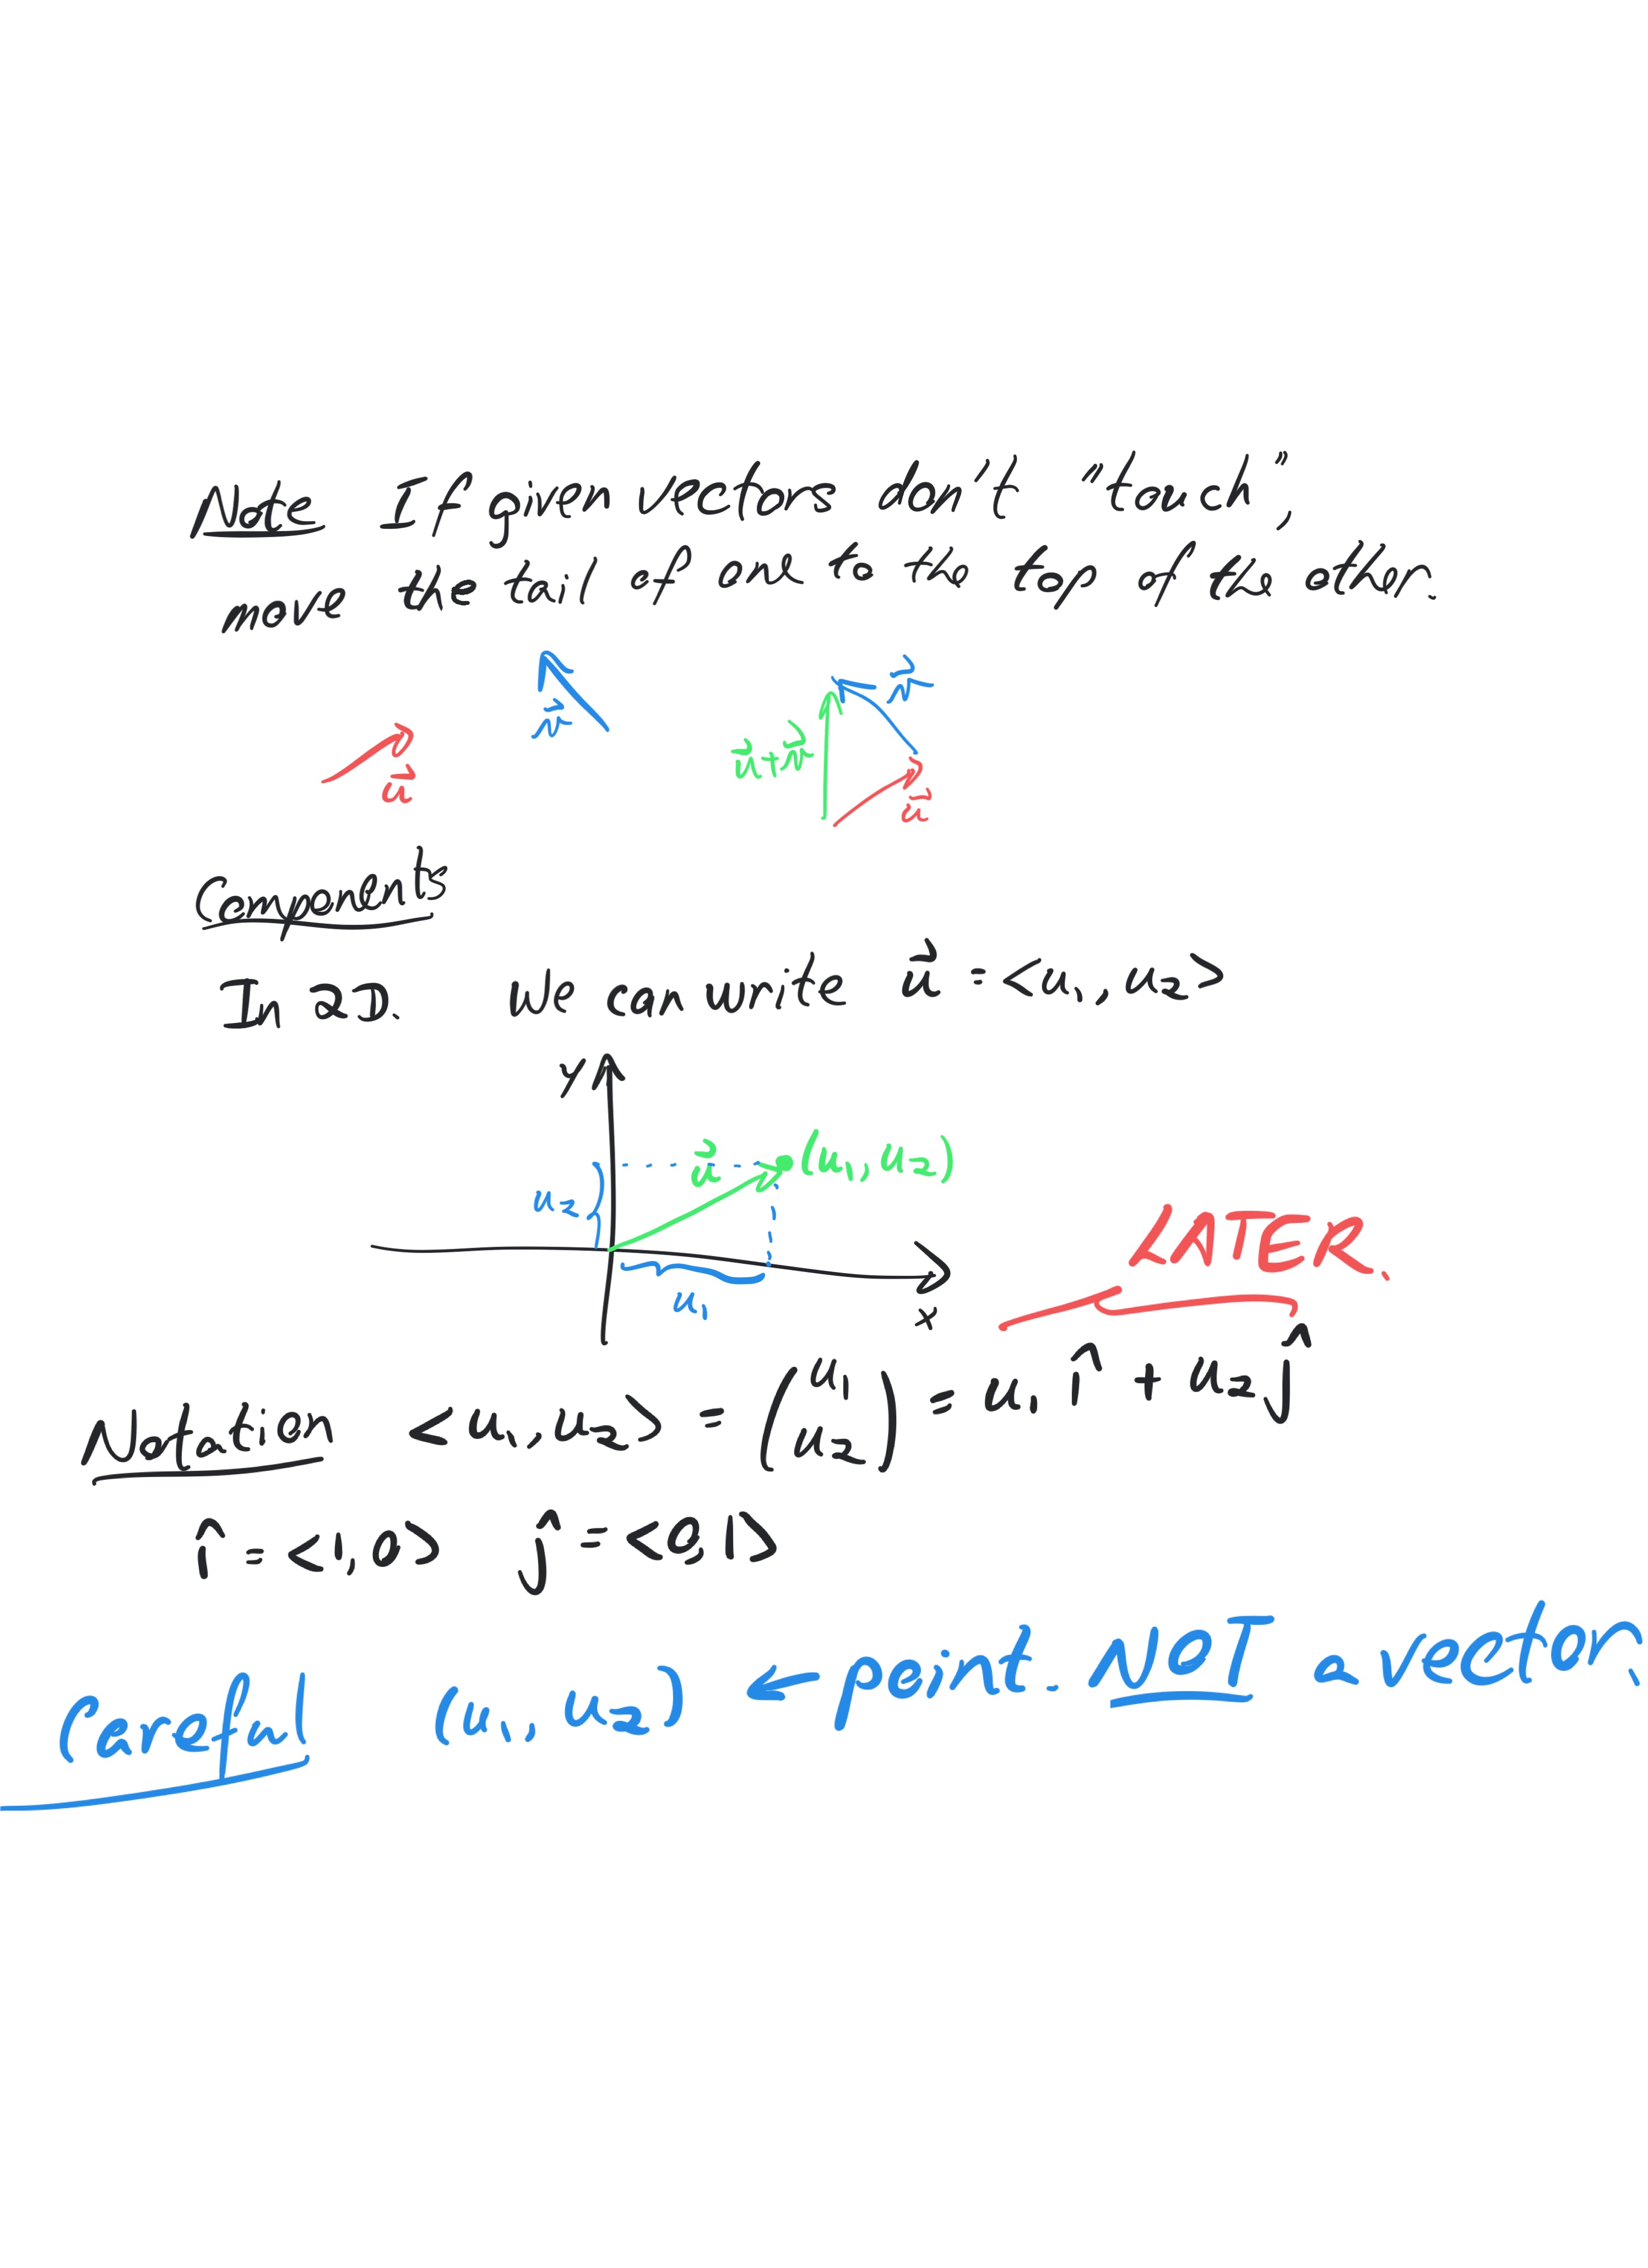 Note If given vectors don't "touch",
move the tail of one to the top of the other.
v⃗
u⃗
v⃗
u⃗+v⃗
u⃗
Components
In 2D. We can write u⃗ = <u₁, u₂>
y
u⃗ (u₁, u₂)
u₂
u₁
x
LATER.
Notation <u₁, u₂> = (u₁ u₂) = u₁ î + u₂ ĵ
î = <1, 0> ĵ = <0, 1>
Careful (u₁, u₂) ← point. NOT a vector.